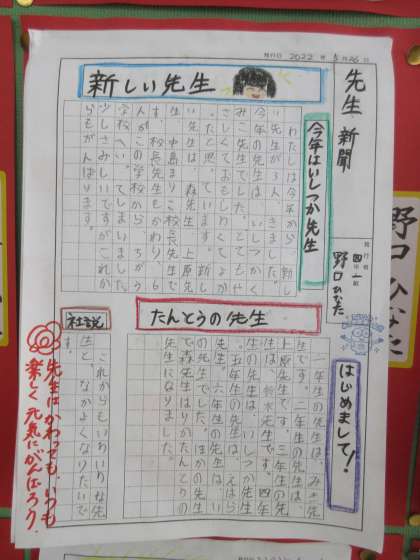 発行日 2022年5月26日
先生新聞
発行者
四年一組
野口ひなた
新しい先生
今年はいしつか先生
わたしは今年から、新し
い先生が3人、きました。
今年の先生は、いしつかく
みこ先生でした。とてもや
さしくておもしろくてよか
ったと思っています。新し
い先生は、森先生、上原先
生、中島まりこ校長先生で
す。校長先生もかわり、6
人がこの学校から、ちがう
学校へいってしまいました。
少しさみしいですがこれか
らもがんばります。
はじめまして!
たんとうの先生
一年生の先生は、みき先
生です。二年生の先生は、
上原先生です。三年生の先
生は、鈴木先生です。四年
生の先生は、いしつか先生
。五年生の先生は、えはら
先生、六年生の先生は、い
の先生でした。ほかの先生
で森先生はりかたんとうの
先生になりました。
社説
これからもいろいろな先
生と、なかよくなりたいで
す。
先生はかわっても、いつも
楽しく元気にがんばろう。
野口ひなた